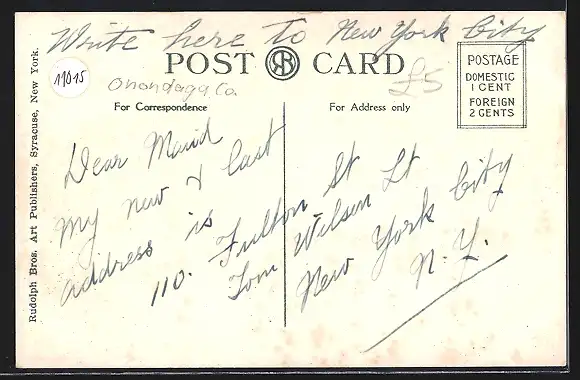 Write here to New York City
POST RB CARD
11015
Onondaga Co.
£5
For Correspondence
For Address only
POSTAGE
DOMESTIC
1 CENT
FOREIGN
2 CENTS
Rudolph Bros. Art Publishers, Syracuse, New York.
Dear Maud
My new & last
address is
110. Fulton St
Tom Wilsen Lt
New York City
N. Y.